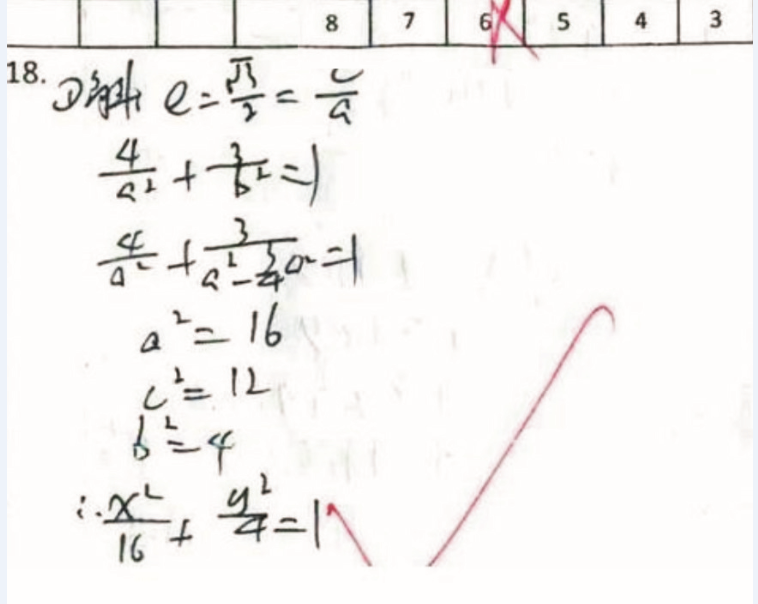 8 7 6 5 4 3
18.
① 解: e = √3/2 = c/a
4/a² + 3/b² = 1
4/a² + 3/(a² - 3/4 a²) = 1
a² = 16
c² = 12
b² = 4
∴ x²/16 + y²/4 = 1